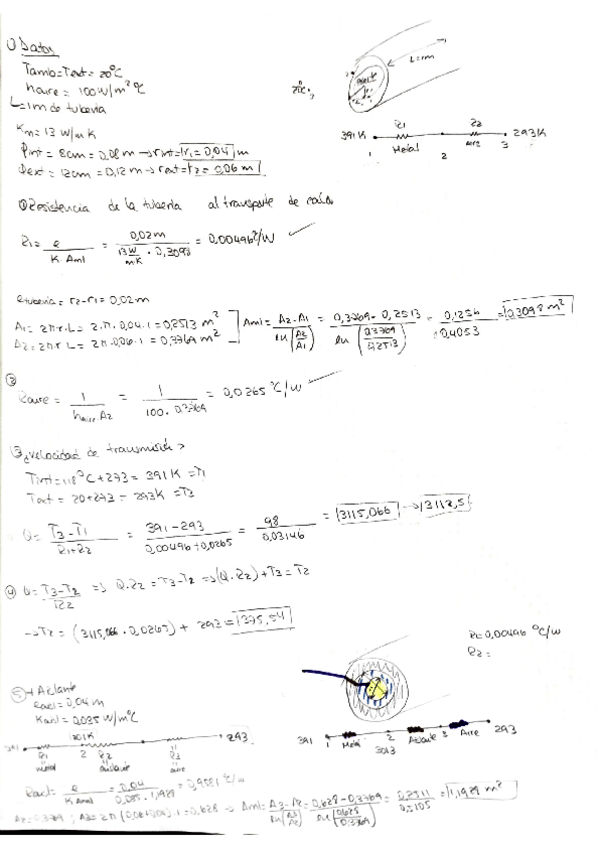 1) Datos
Tamb=Text= 20°C
haire = 100 W/m² °C
L=1m de tubería
Km= 13 W/mK
Φint = 8cm = 0,08 m → rint= r1= 0,04 m
Φext = 12cm = 0,12 m → rext= r2= 0,06 m
L=1m
R1 R2
391K 293K
Metal Aire
1 2 3
① Resistencia de la tubería al transporte de calor
R1= e / K·Aml = 0,02m / 13 W/mK · 0,3098 = 0,00496°C/W
e tubería = r2-r1 = 0,02m
A1= 2πr·L = 2·π·0,04·1 = 0,2513 m²
A2= 2πr·L = 2π·0,06·1 = 0,3769 m²
Aml = A2-A1 / ln(A2/A1) = 0,3769 - 0,2513 / ln(0,3769/0,2513) = 0,1256 / 0,4053 = 0,3098 m²
②
Raire = 1 / haire·A2 = 1 / 100·0,3769 = 0,0265 °C/W
③ ¿velocidad de transmisión?
Tint= 118°C+273 = 391K = T1
Text = 20+273 = 293K = T3
Q= T3-T1 / R1+R2 = 391-293 / 0,00496+0,0265 = 98 / 0,03146 = 3115,066 → 3112,5
④ Q= T3-T2 / R2 => Q·R2 = T3-T2 => (Q·R2)+T3 = T2
→ T2 = (3115,066 · 0,0265) + 293 = 375,54
R1=0,00496 °C/W
R2=
⑤ + Aislante
eaisl = 0,04 m
Kaisl = 0,035 W/m°C
391 293
R1 2 R2
metal aislante aire
391 1 Metal 2 Aislante 3 Aire 293
Raisl= e / K·Aml = 0,04
A2=0,3769 ; A3= 2π(0,06+0,04)·1 = 0,628 → Aml= A3-A2 / ln(A3/A2) = 0,628-0,3769 / ln(0,628/0,3769) = 0,2511